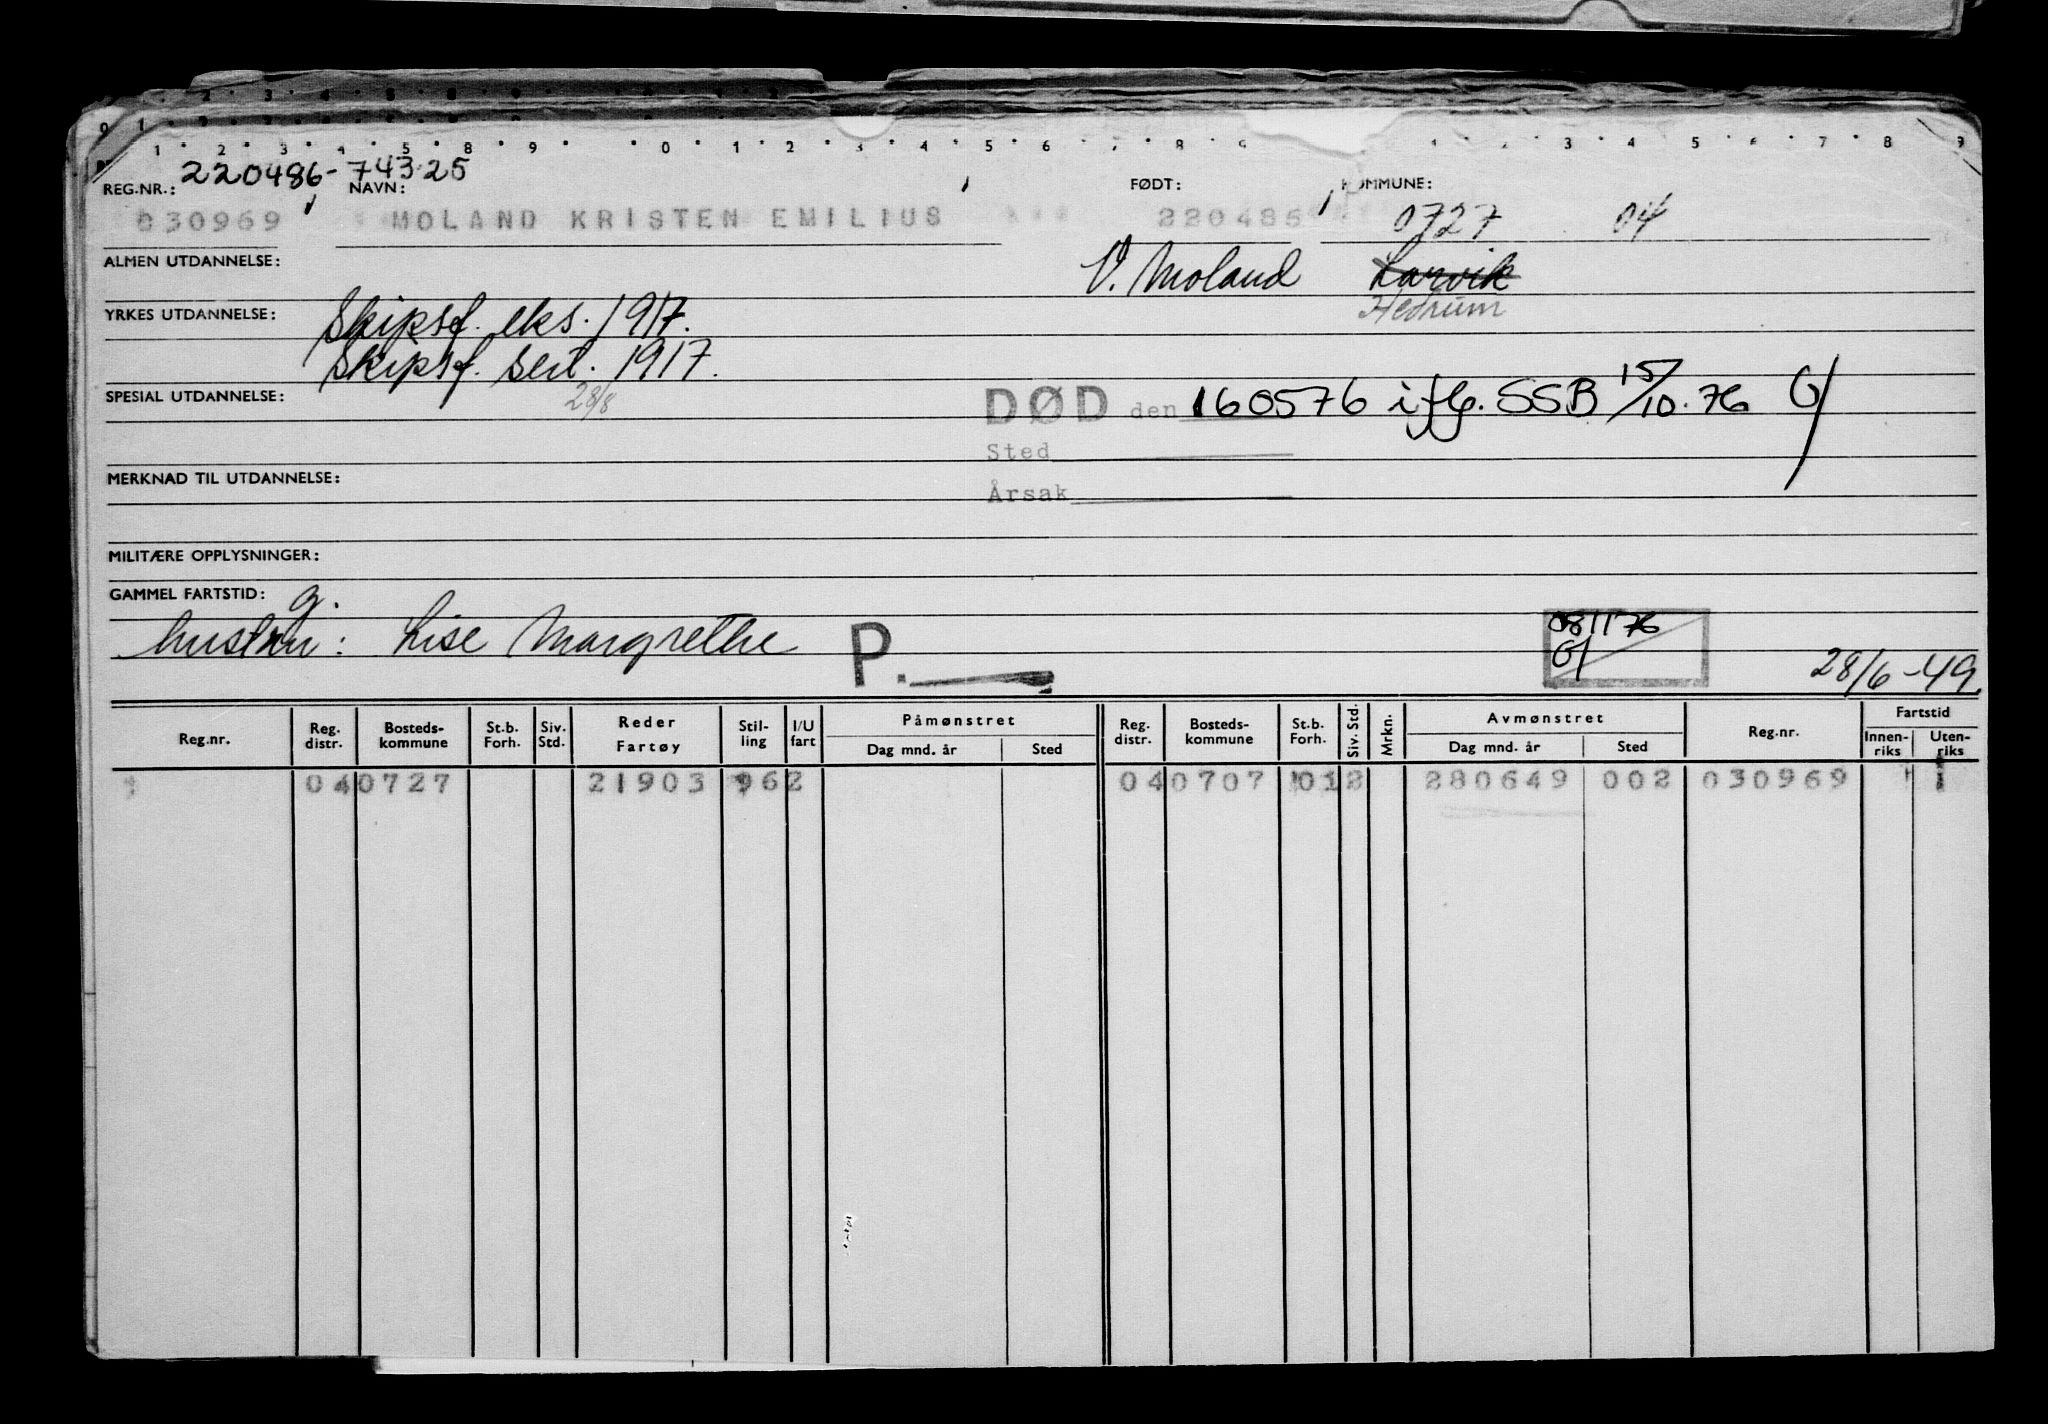 220486-74325
REG.NR.: NAVN: FØDT: KOMMUNE:
030969 MOLAND KRISTEN EMILIUS 220486 0727 04
ALMEN UTDANNELSE: V. Moland Larvik
YRKES UTDANNELSE: Skipsf. eks. 1917. Hedrum
Skipsf. sert. 1917.
SPESIAL UTDANNELSE: 28/8 DØD den 160576 iflg. SSB 15/10.76
Sted
MERKNAD TIL UTDANNELSE: Årsak
MILITÆRE OPPLYSNINGER:
GAMMEL FARTSTID: g.
hustru: Lise Margrethe P. 081176
28/6-49.
Reg.nr. Reg. distr. Bosteds-kommune St.b. Forh. Siv. Std. Reder Fartøy Stil-ling I/U fart Påmønstret Dag mnd. år Sted Reg. distr. Bosteds-kommune St.b. Forh. Siv. Std. Mrkn. Avmønstret Dag mnd. år Sted Reg.nr. Fartstid Innen-riks Uten-riks
040727 21903 962 040707 012 280649 002 030969